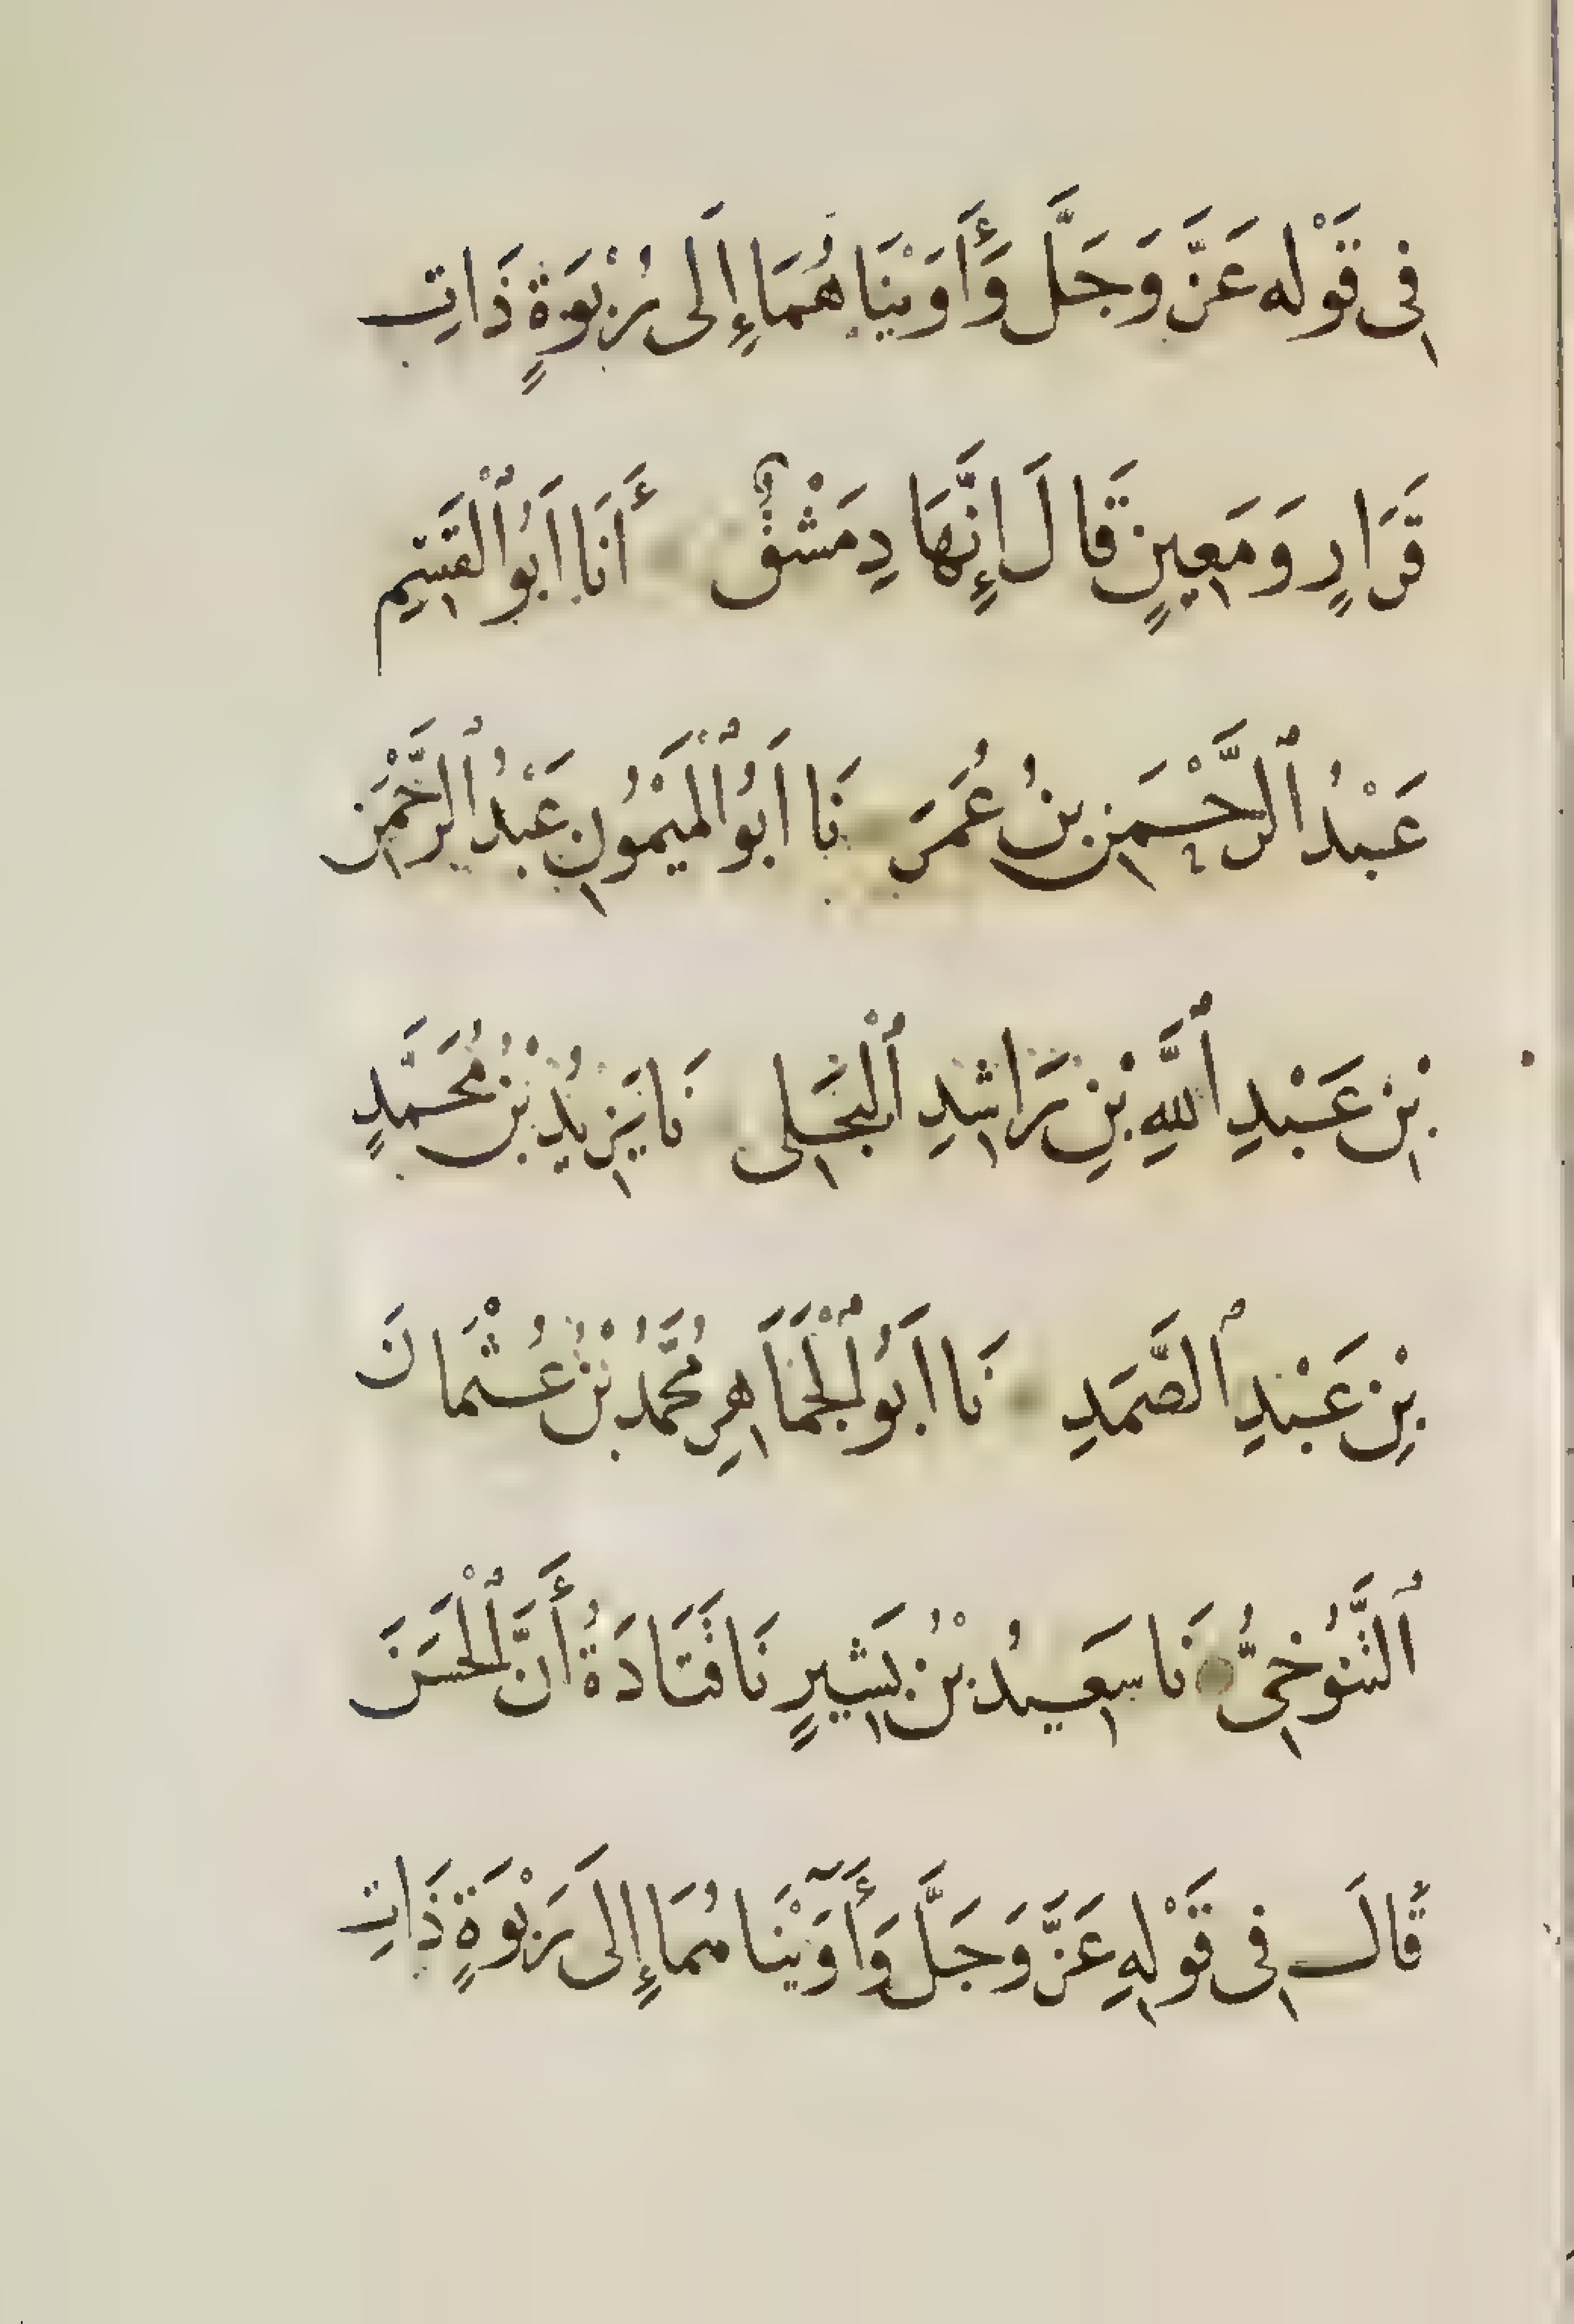 فِى قَوْلِه عَزَّ وَجَلَّ وَأَوَيْنَاهُمَا إِلَى رُبْوَةٍ ذَاتِ
قَرَارٍ وَمَعِينٍ قَالَ إِنَّهَا دِمَشْقُ أَنَا اَبُو ٱلْقَسِمِ
عَبْدُ ٱلرَّحْمَنِ بْنُ عُمَرَ نَا اَبُو ٱلْمَيْمُونِ عَبْدُ ٱلرَّحْمَنِ
بْنِ عَبْدِ ٱللَّهِ بْنِ رَاشِدِ ٱلْبَجَلِى نَا يَزِيدُ بْنُ مُحَمَّدِ
بْنِ عَبْدِ ٱلصَّمَدِ نَا اَبُو ٱلْجَمَاَهِرِ مُحَمَّدُ بْنُ عُثْمَانَ
ٱلتَّنُوخِىُّ نَا سَعِيدُ بْنُ بَشِيرٍ نَا قَتَادَةُ أَنَّ ٱلْحَسَنَ
قَالَ فِى قَوْلِهِ عَزَّ وَجَلَّ وَأَوَيْنَاهُمَا إِلَى رَبْوَةٍ ذَاتِ